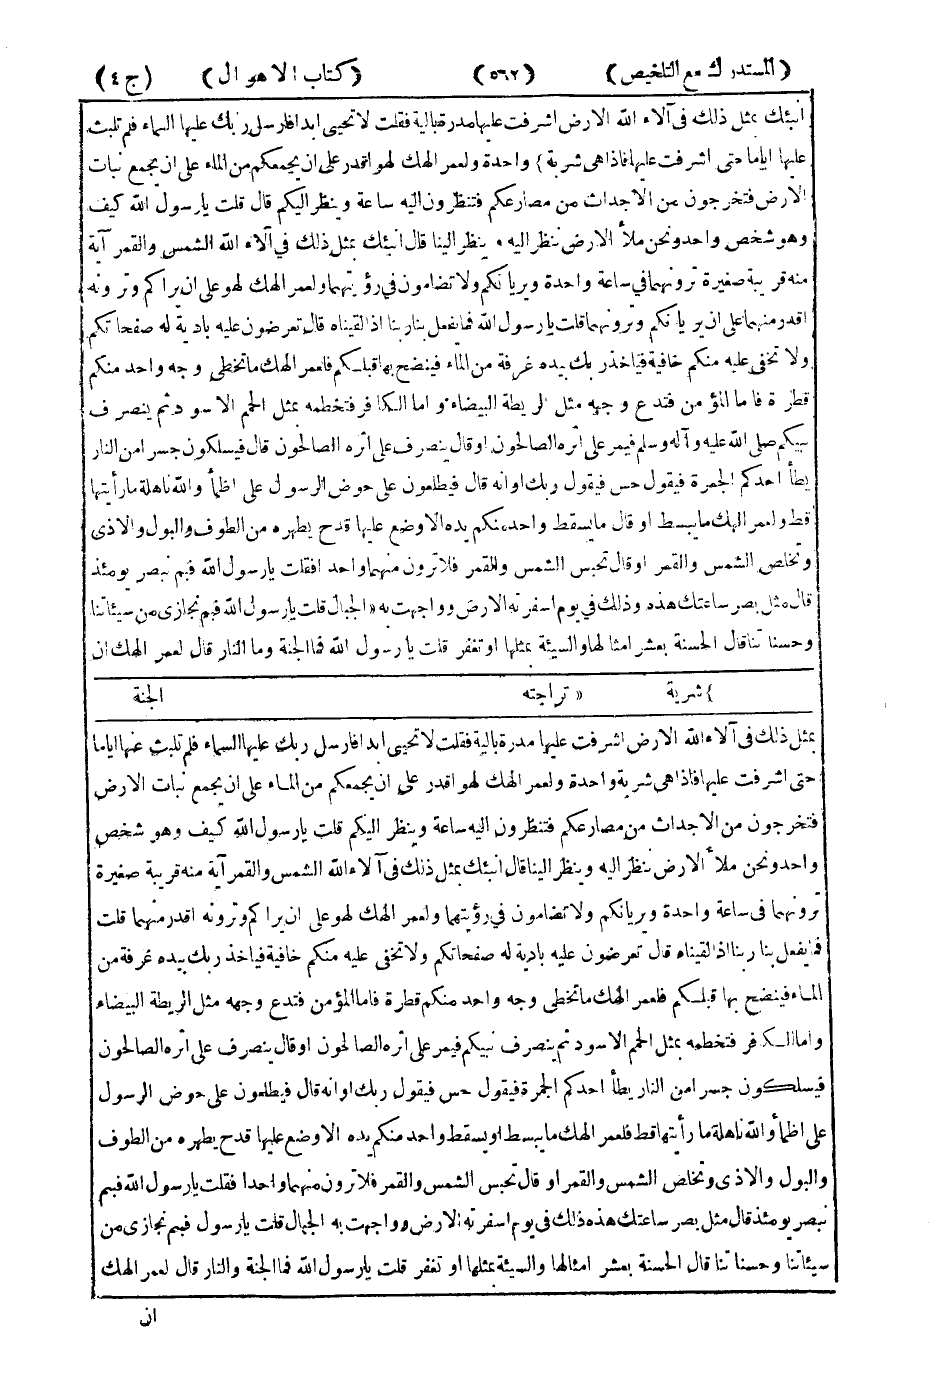 (المستدرك مع التلخيص) (٥٦٢) (كتاب الاهوال) (ج٤)
انبئك بمثل ذلك فى آلاء الله الارض اشرفت عليها مدرة بالية فقلت لا تحيى ابدا فارسل ربك عليها السماء فلم تلبث
عليها اياما حتى اشرفت عليها فاذا هى شربة } واحدة ولعمر الهك لهو اقدر على ان يجمعكم من الماء على ان يجمع نبات
الارض فتخرجون من الاجداث من مصارعكم فتنظرون اليه ساعة وينظر اليكم قال قلت يارسول الله كيف
وهو شخص واحد ونحن ملأ الارض ننظر اليه وينظر الينا قال انبئك بمثل ذلك في آلاء الله الشمس والقمر آية
منه قريبة صغيرة ترونهما في ساعة واحدة ويريانكم ولا تضامون في رؤيتهما ولعمر الهك لهو على ان يراكم وترونه
اقدر منهما على ان يريانكم وترونهما قلت يارسول الله فما يفعل بنا ربنا اذا لقيناه قال تعرضون عليه بادية له صفحاتكم
ولا تخفى عليه منكم خافية فياخذ ربك بيده غرفة من الماء فينضح بها قبلكم فلعمر الهك ما تخطى وجه واحد منكم
قطرة فاما المؤمن فتدع وجهه مثل الريطة البيضاء و اما الكافر فتخطمه بمثل الحمم الاسود ثم ينصرف
نبيكم صلى الله عليه وآله وسلم فيمر على اثره الصالحون او قال ينصرف على اثره الصالحون قال فيسلكون جسرا من النار
يطأ احدكم الجمرة فيقول حس فيقول ربك اوانه قال فيطلعون على حوض الرسول على اظمأ والله ناهلة ما رأيتها
قط ولعمر الهك ما يبسط او قال ما يسقط واحد منكم يده الا وضع عليها قدح يطهره من الطوف والبول والاذى
وتخلص الشمس والقمر او قال تحبس الشمس والقمر فلا ترون منهما واحدا فقلت يارسول الله فبم نبصر يومئذ
قال مثل بصر ساعتك هذه وذلك في يوم اسفرته الارض وواجهت به « الجبال قلت يارسول الله فبم نجازى من سيئاتنا
وحسناتنا قال الحسنة بعشر امثالها والسيئة بمثلها او تغفر قلت يارسول الله فما الجنة وما النار قال لعمر الهك ان
} شرية « تراجته الجنة
بمثل ذلك فى آلاء الله الارض اشرفت عليها مدرة بالية فقلت لا تحيى ابدا فارسل ربك عليها السماء فلم تلبث عنها اياما
حتى اشرفت عليها فاذا هى شربة واحدة ولعمر الهك لهو اقدر على ان يجمعكم من الماء على ان يجمع نبات الارض
فتخرجون من الاجداث من مصارعكم فتنظرون اليه ساعة وينظر اليكم قلت يارسول الله كيف وهو شخص
واحد ونحن ملأ الارض ننظر اليه وينظر الينا قال انبئك بمثل ذلك فى آلاء الله الشمس والقمر آية منه قريبة صغيرة
ترونهما فى ساعة واحدة ويريانكم ولا تضامون في رؤيتهما ولعمر الهك لهو على ان يراكم وترونه اقدر منهما قلت
فما يفعل بنا ربنا اذا لقيناه قال تعرضون عليه بادية له صفحاتكم ولا تخفى عليه منكم خافية فياخذ ربك بيده غرفة من
الماء فينضح بها قبلكم فلعمر الهك ما تخطى وجه واحد منكم قطرة فاما المؤمن فتدع وجهه مثل الريطة البيضاء
واما الكافر فتخطمه بمثل الحمم الاسود ثم ينصرف نبيكم فيمر على اثره الصالحون او قال ينصرف على اثره الصالحون
فيسلكون جسرا من النار يطأ احدكم الجمرة فيقول حس فيقول ربك اوانه قال فيطلعون على حوض الرسول
على اظمأ والله ناهلة ما رأيتها قط فلعمر الهك ما يبسط او يسقط واحد منكم يده الا وضع عليها قدح يطهره من الطوف
والبول والاذى وتخلص الشمس والقمر او قال تحبس الشمس والقمر فلا ترون منهما واحدا فقلت يارسول الله فبم
نبصر يومئذ قال مثل بصر ساعتك هذه ذلك في يوم اسفرته الارض وواجهت به الجبال قلت يارسول فبم نجازى من
سيئاتنا وحسناتنا قال الحسنة بعشر امثالها والسيئة بمثلها او تغفر قلت يارسول الله فما الجنة والنار قال لعمر الهك
ان